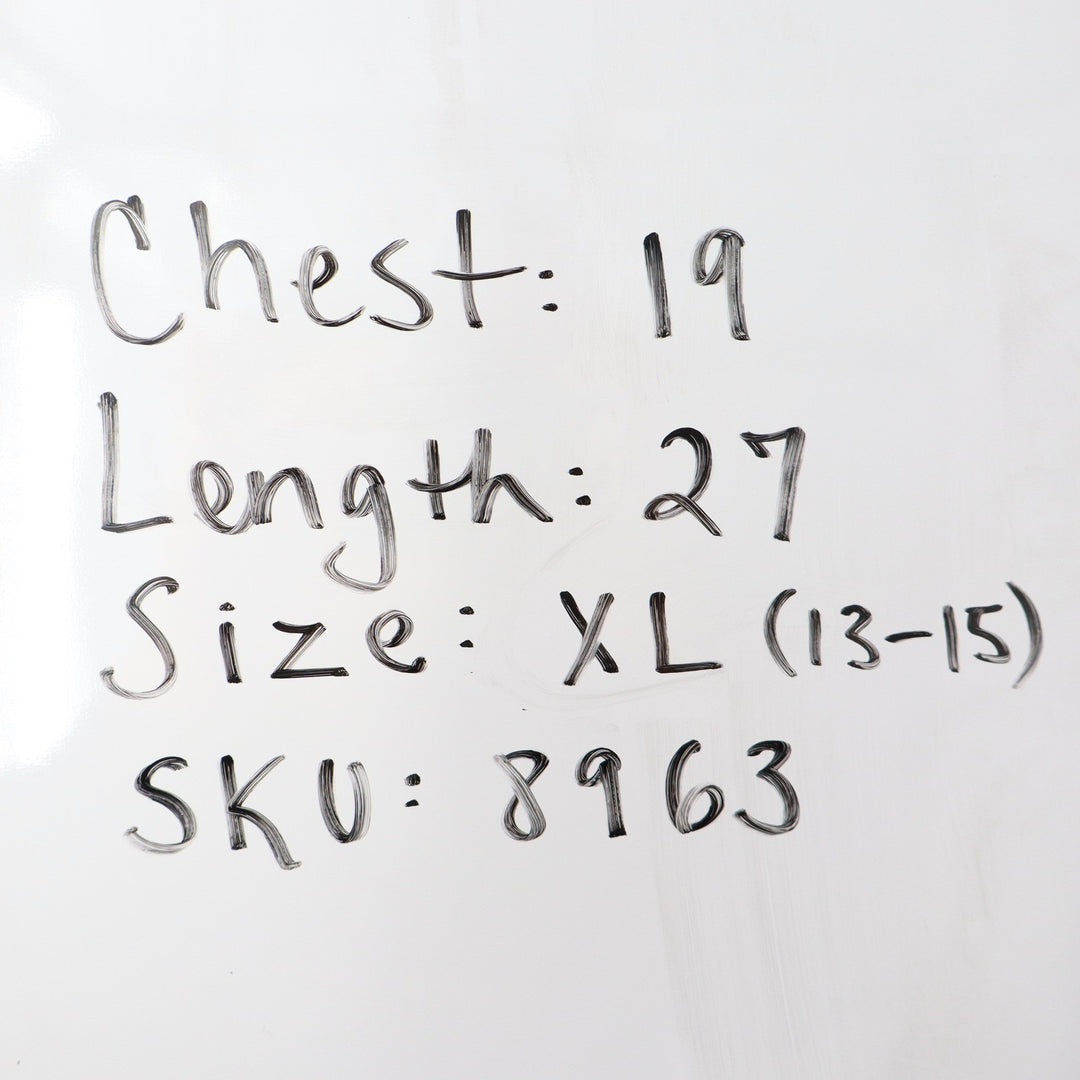 Chest: 19
Length: 27
Size: XL (13-15)
SKU: 8963